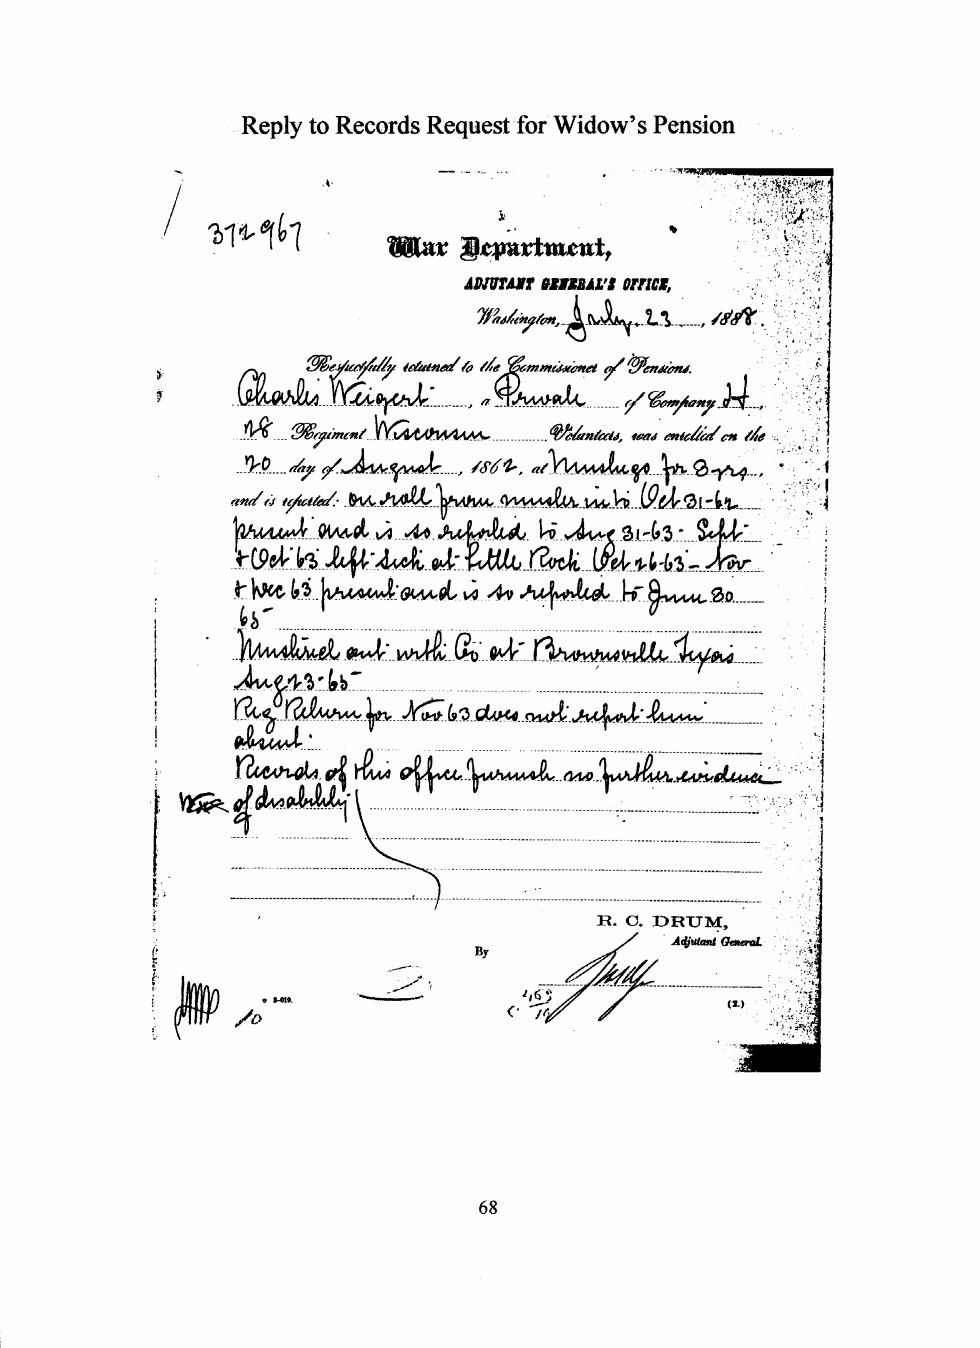 Reply to Records Request for Widow's Pension
372967
War Department,
ADJUTANT GENERAL'S OFFICE,
Washington, July 23, 1888.
Respectfully returned to the Commissioner of Pensions.
Charles Weigert, a Private of Company H,
28 Regiment Wisconsin Volunteers, was enrolled on the
20 day of August, 1862, at Muskego for 3 yrs,
and is reported: on roll from muster in to Oct 31-62
present and is so reported to Aug 31-63- Sept
& Oct 63 left sick at Little Rock Oct 26-63- Nov
& Dec 63 present and is so reported to June 30
65
Mustered out with Co at Brownsville Texas
Aug 23-65
Reg Return for Nov 63 does not report him
absent.
Records of this office furnish no further evidence
of disability
R. C. DRUM,
Adjutant General.
By
3-019.
10
(2.)
68